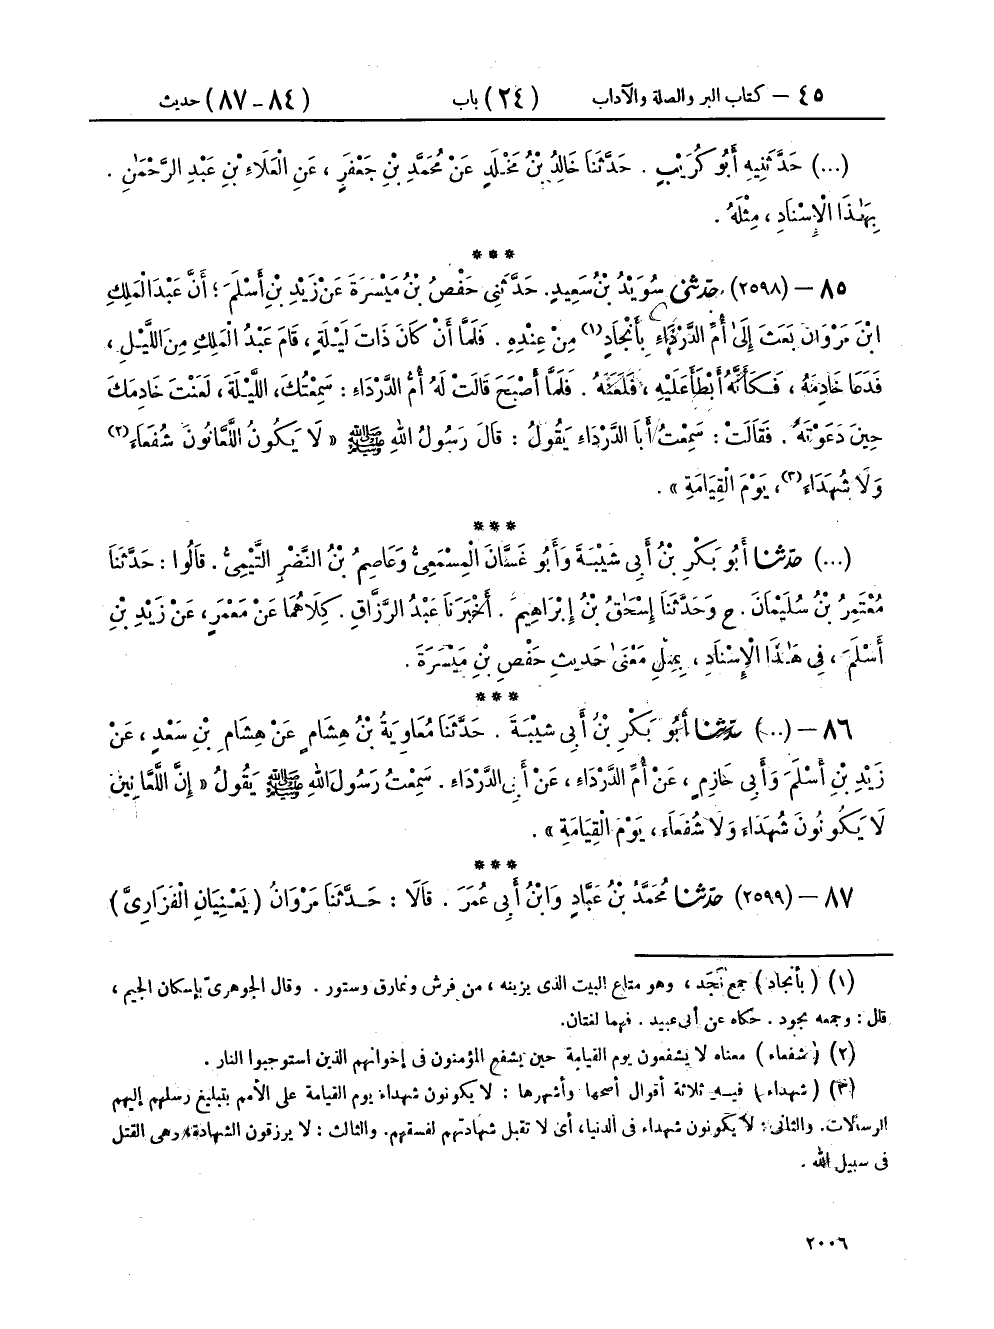 ٤٥ – كتاب البر والصلة والآداب (٢٤) باب (٨٤-٨٧) حديث
(...) حَدَّثَنِيهِ أَبُو كُرَيْبٍ . حَدَّثَنَا خَالِدُ بْنُ مَخْلَدٍ عَنْ مُحَمَّدِ بْنِ جَعْفَرٍ ، عَنِ الْعَلَاءِ بْنِ عَبْدِ الرَّحْمَٰنِ .
بِهَٰذَا الْإِسْنَادِ ، مِثْلَهُ .
***
٨٥ – (٢٥٩٨) حَدَّثَنِي سُوَيْدُ بْنُ سَعِيدٍ. حَدَّثَنِي حَفْصُ بْنُ مَيْسَرَةَ عَنْ زَيْدِ بْنِ أَسْلَمَ ؛ أَنَّ عَبْدَ الْمَلِكِ
ابْنَ مَرْوَانَ بَعَثَ إِلَىٰ أُمِّ الدَّرْدَاءِ بِأَنْجَادٍ(١) مِنْ عِنْدِهِ . فَلَمَّا أَنْ كَانَ ذَاتَ لَيْلَةٍ، قَامَ عَبْدُ الْمَلِكِ مِنَ اللَّيْلِ ،
فَدَعَا خَادِمَهُ ، فَكَأَنَّهُ أَبْطَأَ عَلَيْهِ ، فَلَعَنَهُ . فَلَمَّا أَصْبَحَ قَالَتْ لَهُ أُمُّ الدَّرْدَاءِ : سَمِعْتُكَ، اللَّيْلَةَ، لَعَنْتَ خَادِمَكَ
حِينَ دَعَوْتَهُ . فَقَالَتْ : سَمِعْتُ أَبَا الدَّرْدَاءِ يَقُولُ : قَالَ رَسُولُ اللهِ ﷺ « لَا يَكُونُ اللَّعَّانُونَ شُفَعَاءَ(٢)
وَلَا شُهَدَاءَ(٣)، يَوْمَ الْقِيَامَةِ » .
***
(...) حَدَّثَنَا أَبُو بَكْرِ بْنُ أَبِي شَيْبَةَ وَأَبُو غَسَّانَ الْمِسْمَعِيُّ وَعَاصِمُ بْنُ النَّضْرِ التَّيْمِيُّ . قَالُوا : حَدَّثَنَا
مُعْتَمِرُ بْنُ سُلَيْمَانَ . ح وَحَدَّثَنَا إِسْحَٰقُ بْنُ إِبْرَاهِيمَ . أَخْبَرَنَا عَبْدُ الرَّزَّاقِ . كِلَاهُمَا عَنْ مَعْمَرٍ، عَنْ زَيْدِ بْنِ
أَسْلَمَ ، فِي هَٰذَا الْإِسْنَادِ ، بِمِثْلِ مَعْنَىٰ حَدِيثِ حَفْصِ بْنِ مَيْسَرَةَ .
***
٨٦ – (...) حَدَّثَنَا أَبُو بَكْرِ بْنُ أَبِي شَيْبَةَ . حَدَّثَنَا مُعَاوِيَةُ بْنُ هِشَامٍ عَنْ هِشَامِ بْنِ سَعْدٍ ، عَنْ
زَيْدِ بْنِ أَسْلَمَ وَأَبِي حَازِمٍ ، عَنْ أُمِّ الدَّرْدَاءِ ، عَنْ أَبِي الدَّرْدَاءِ . سَمِعْتُ رَسُولَ اللهِ ﷺ يَقُولُ « إِنَّ اللَّعَّانِينَ
لَا يَكُونُونَ شُهَدَاءَ وَلَا شُفَعَاءَ، يَوْمَ الْقِيَامَةِ » .
***
٨٧ – (٢٥٩٩) حَدَّثَنَا مُحَمَّدُ بْنُ عَبَّادٍ وَابْنُ أَبِي عُمَرَ . قَالَا : حَدَّثَنَا مَرْوَانُ ( يَعْنِيَانِ الْفَزَارِيَّ )
(١) ( بأنجاد ) جمع نَجَد ، وهو متاع البيت الذى يزينه ، من فرش ونمارق وستور . وقال الجوهرىّ بإسكان الجيم ،
قال : وجمعه نجود . حكاه عن أبى عبيد . فهما لغتان.
(٢) ( شفعاء ) معناه لا يشفعون يوم القيامة حين يشفع المؤمنون فى إخوانهم الذين استوجبوا النار .
(٣) ( شهداء ) فيه ثلاثة أقوال أصحها وأشهرها : لا يكونون شهداء يوم القيامة على الأمم بتبليغ رسلهم إليهم
الرسالات. والثانى : لا يكونون شهداء فى الدنيا، أى لا تقبل شهادتهم لفسقهم. والثالث : لا يرزقون الشهادة، وهى القتل
فى سبيل الله .
٢٠٠٦